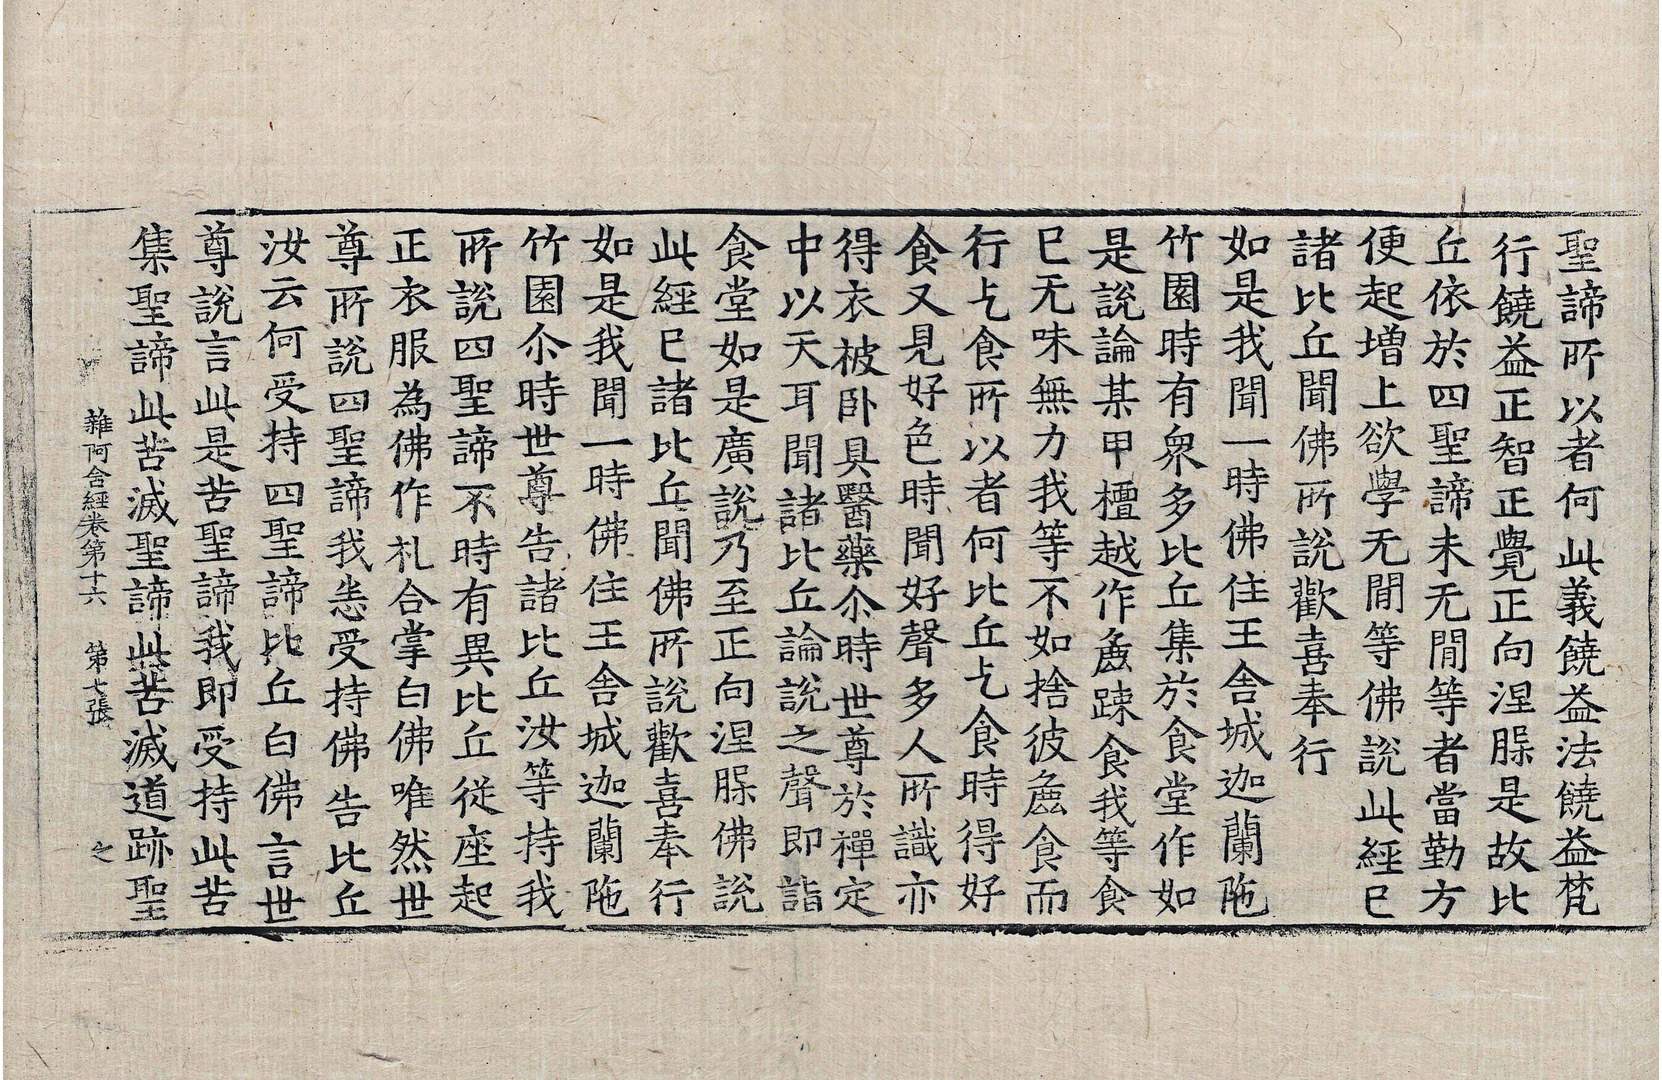 聖諦所以者何此義饒益法饒益梵
行饒益正智正覺正向涅槃是故比
丘依於四聖諦未无閒等者當勤方
便起增上欲學无閒等佛說此經已
諸比丘聞佛所說歡喜奉行
如是我聞一時佛住王舍城迦蘭陁
竹園時有衆多比丘集於食堂作如
是說論某甲檀越作麁踈食我等食
已无味無力我等不如捨彼麁食而
行乞食所以者何比丘乞食時得好
食又見好色時聞好聲多人所識亦
得衣被卧具醫藥尒時世尊於禪定
中以天耳聞諸比丘論說之聲即詣
食堂如是廣說乃至正向涅槃佛說
此經已諸比丘聞佛所說歡喜奉行
如是我聞一時佛住王舍城迦蘭陁
竹園尒時世尊告諸比丘汝等持我
所說四聖諦不時有異比丘從座起
正衣服為佛作礼合掌白佛唯然世
尊所說四聖諦我悉受持佛告比丘
汝云何受持四聖諦比丘白佛言世
尊說言此是苦聖諦我即受持此苦
集聖諦此苦滅聖諦此苦滅道跡聖
雜阿含經卷第十六 第七張 之